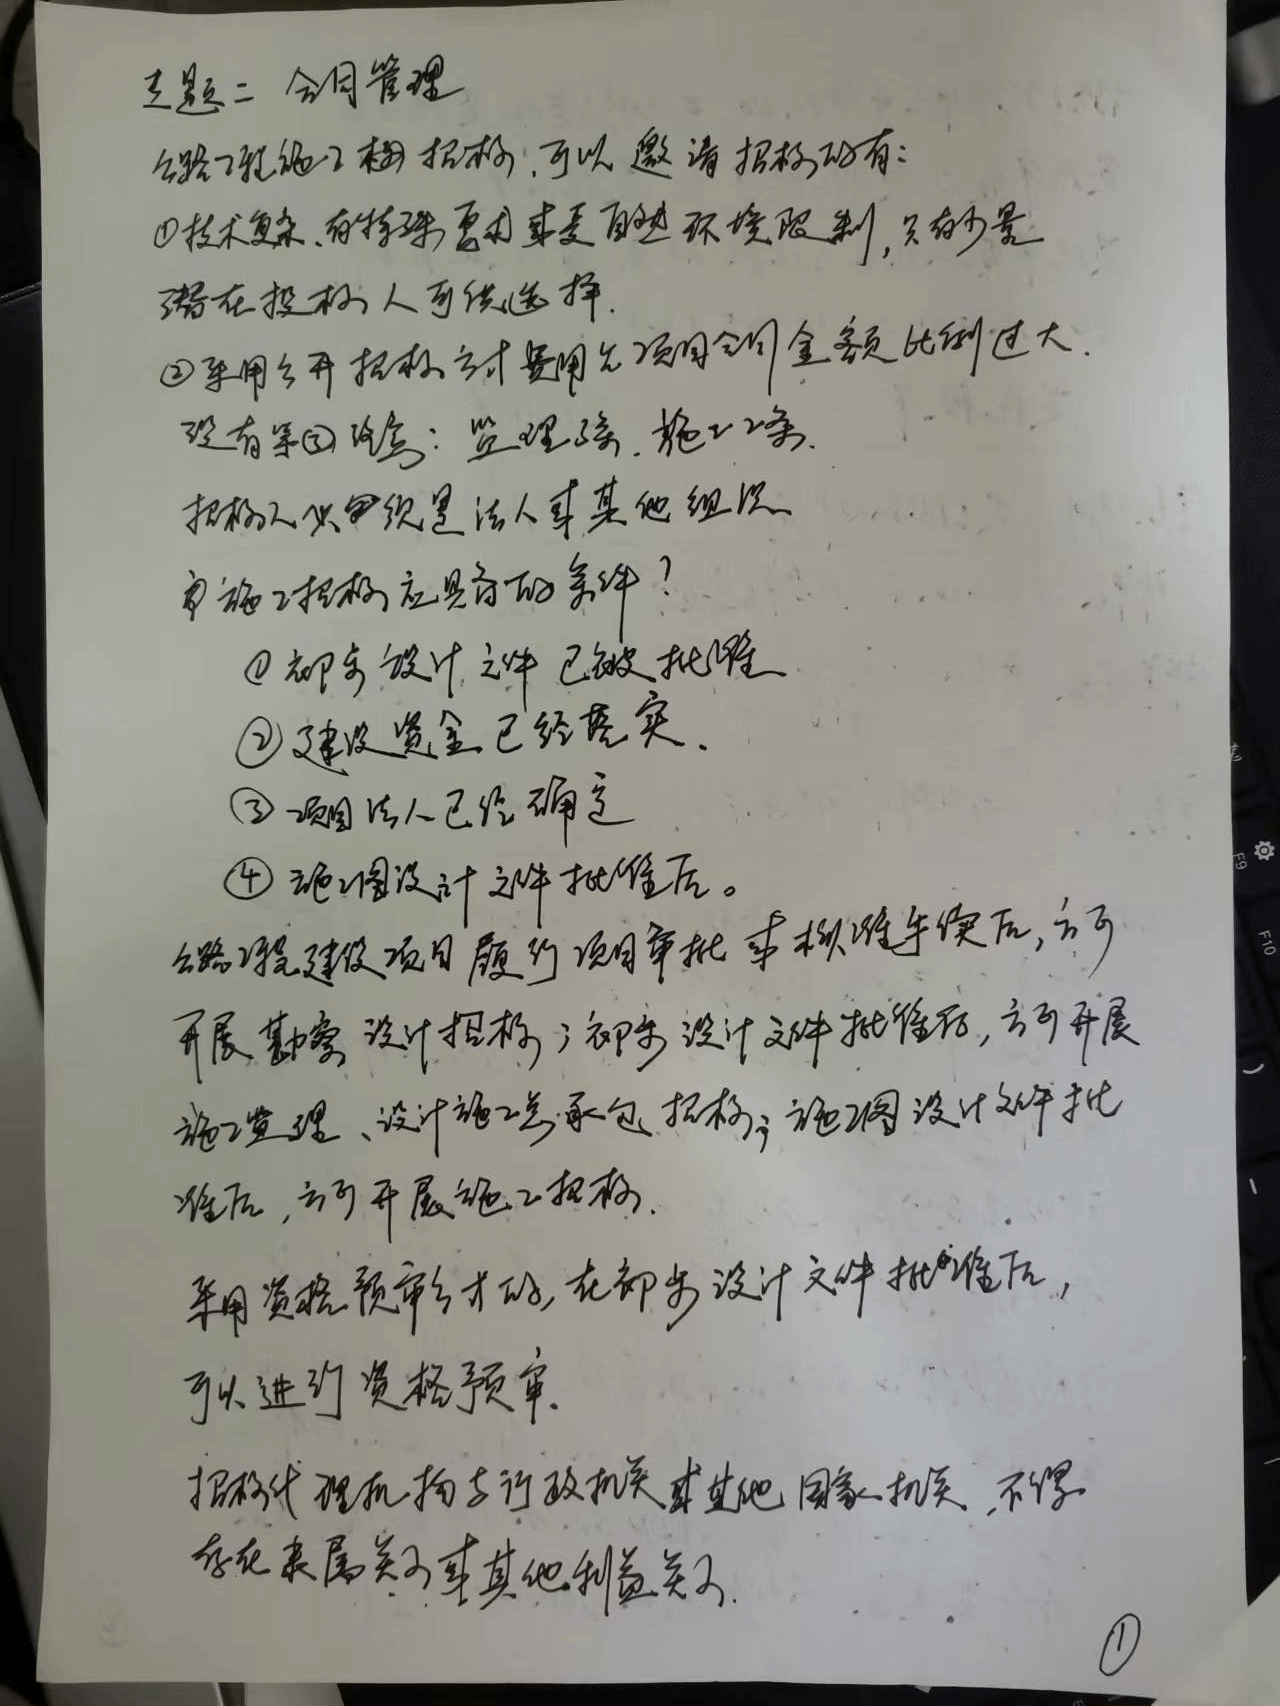 主题二 合同管理
公路工程施工招标,可以邀请招标的有:
①技术复杂、有特殊要求或受自然环境限制,只有少量
潜在投标人可供选择.
②采用公开招标方式费用占项目合同金额比例过大.
没有第 : 监理 、施工 条.
招标人必须是法人或其他组织
施工招标应具备的条件?
①初步设计文件已被批准
②建设资金已经落实.
③项目法人已经确定
④施工图设计文件批准后。
公路工程建设项目履行项目审批或核准手续后,方可
开展勘察设计招标;初步设计文件批准后,方可开展
施工监理、设计施工总承包招标;施工图设计文件批
准后,方可开展施工招标.
采用资格预审方式的,在初步设计文件批准后,
可以进行资格预审.
招标代理机构与行政机关或其他国家机关,不得
存在隶属关系或其他利益关系.
①
F9
F10